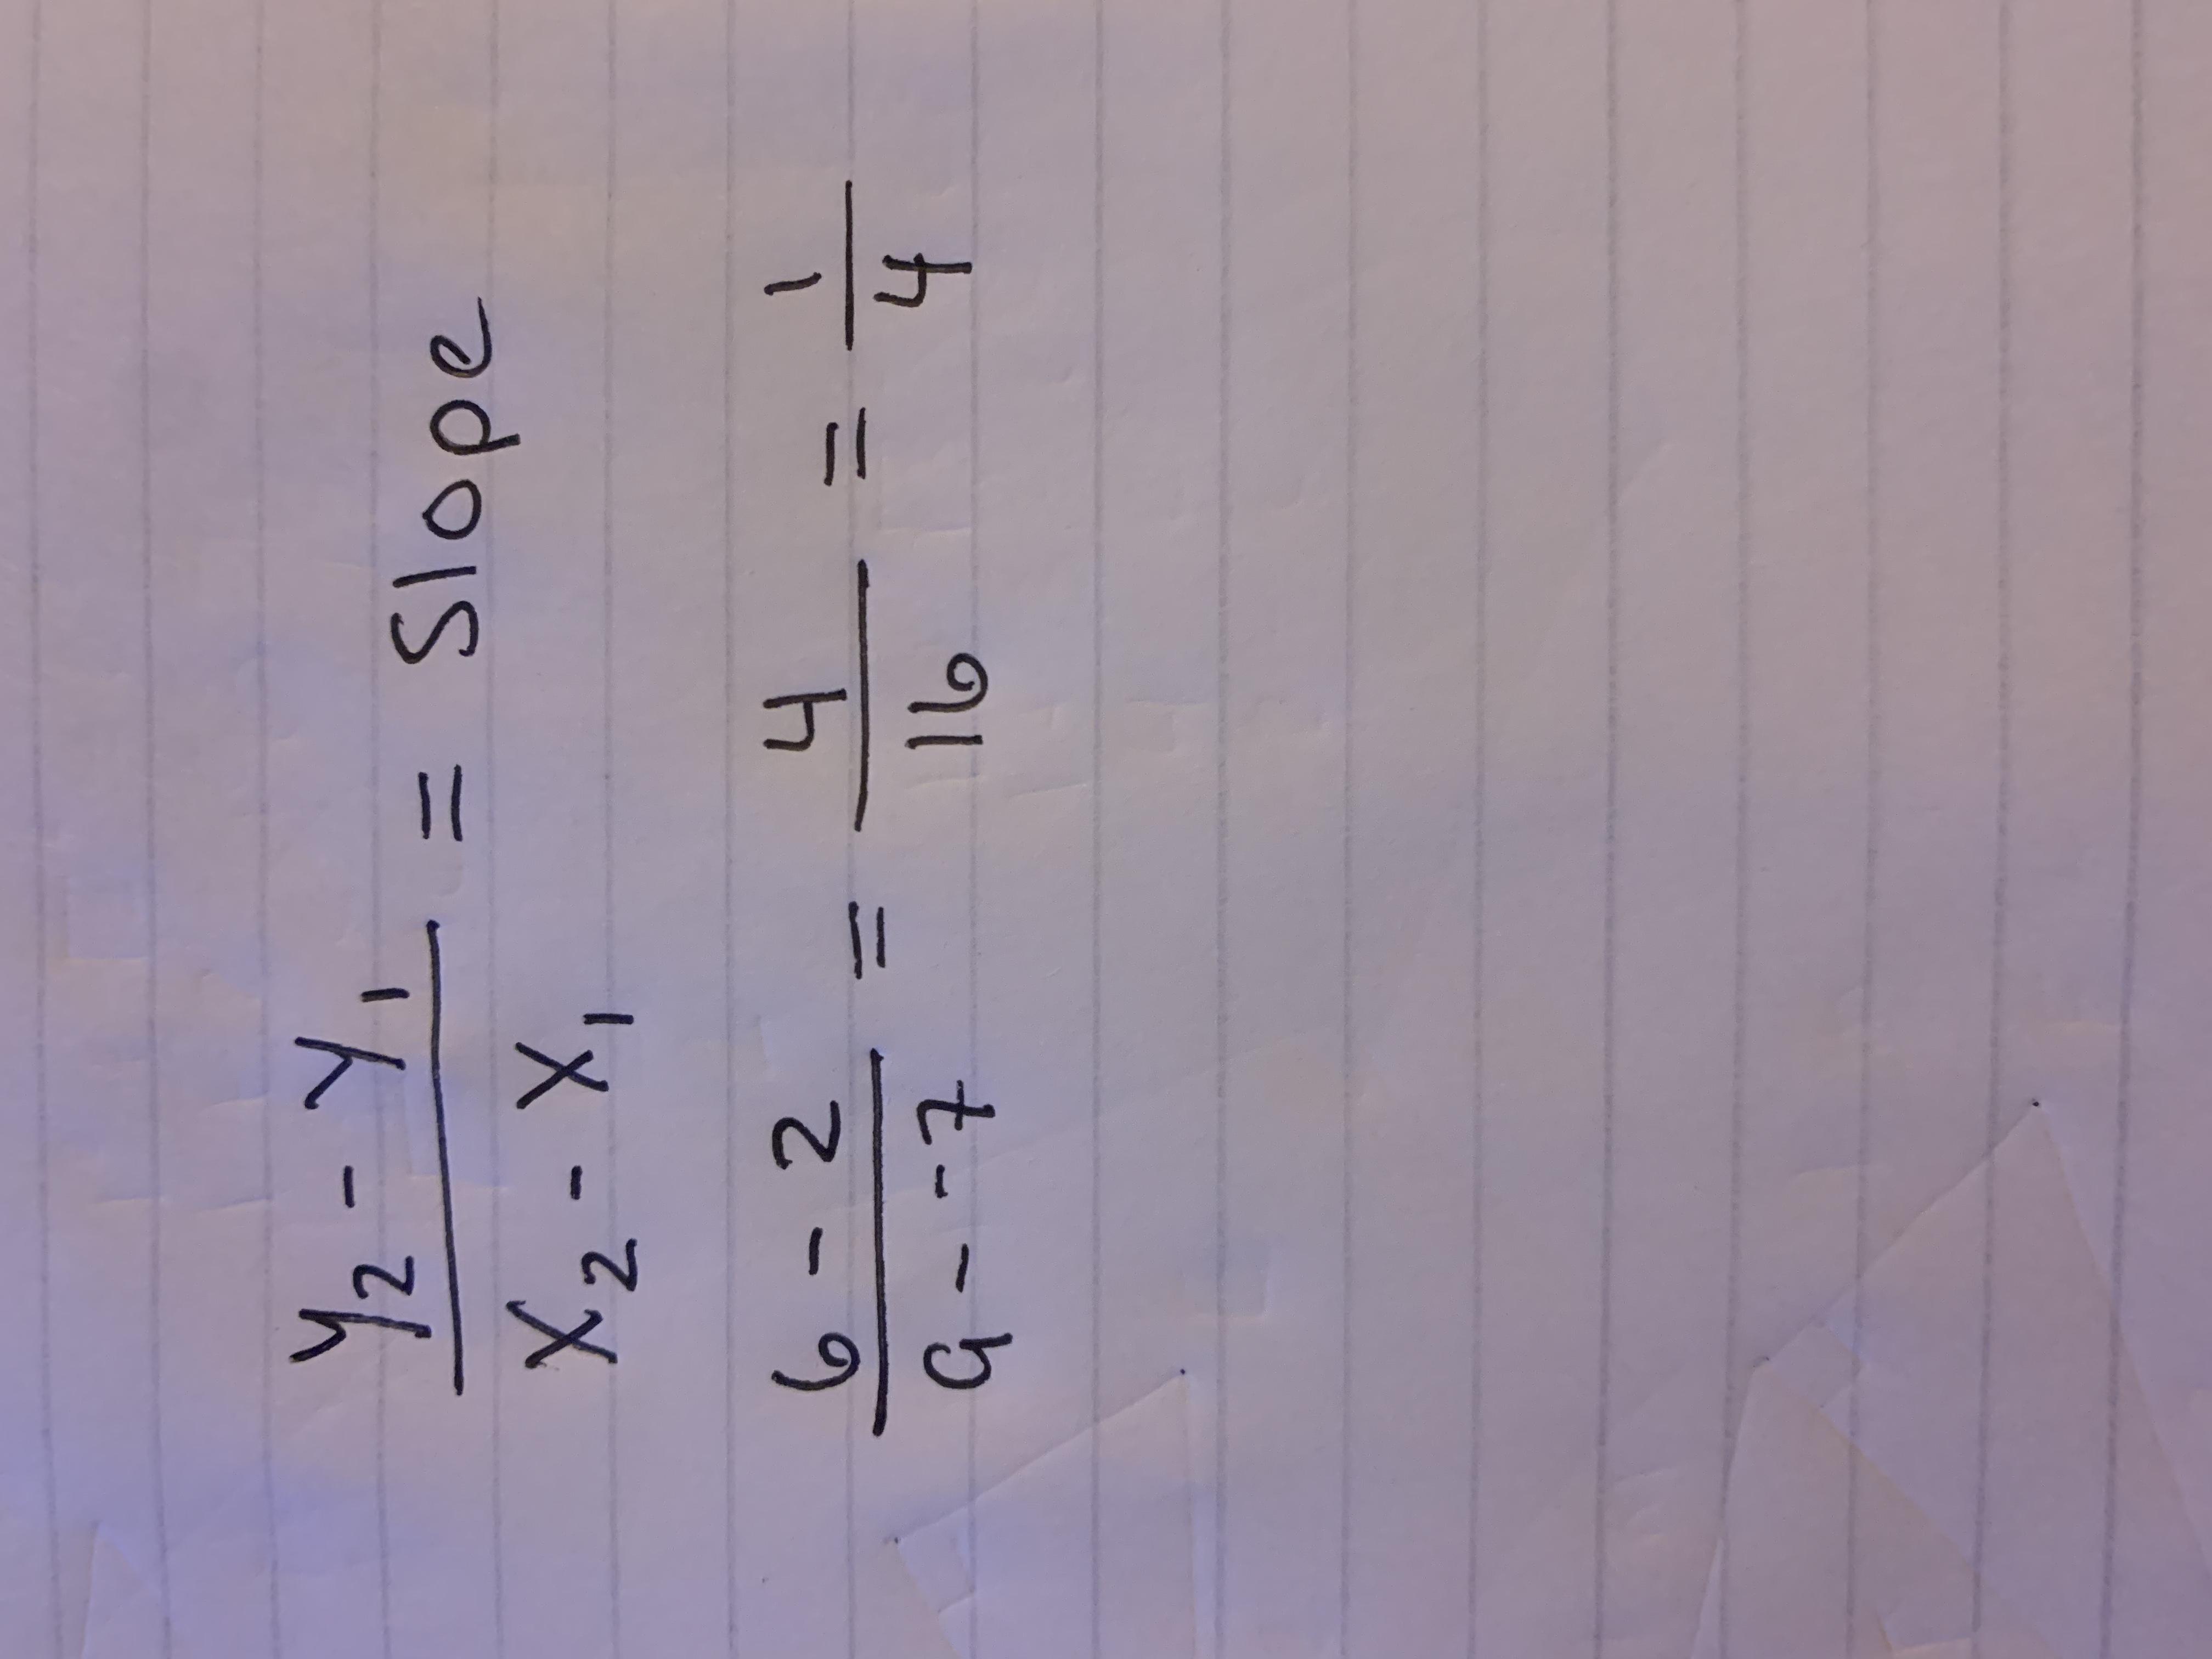 y₂ - y₁ / x₂ - x₁ = Slope
6 - 2 / 9 - -7 = 4 / 16 = 1 / 4